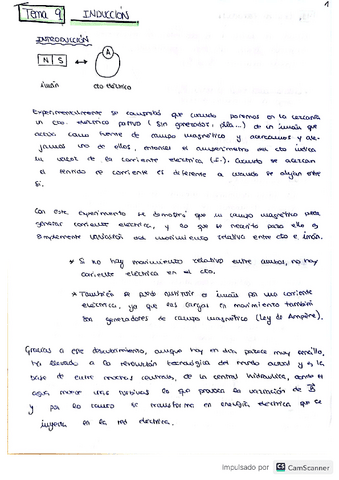 1
Tema 9 INDUCCIÓN
INTRODUCCIÓN
N S A
imán cto eléctrico
Experimentalmente se comprobó que cuando ponemos en la cercanía
un cto. eléctrico pasivo (sin generador: pila...) de un imán que
actúa como fuente de campo magnético y acercamos y ale-
jamos uno de ellos, entonces el amperímetro del cto indica
el valor de la corriente eléctrica (I). Cuando se acercan
el sentido de corriente es diferente a cuando se alejan entre
sí.
Con este experimento se demostró que un campo magnético puede
generar corriente eléctrica, y lo que se necesita para ello es
simplemente variación del movimiento relativo entre cto e imán.
* Si no hay movimiento relativo entre ambos, no hay
corriente eléctrica en el cto.
* También se puede sustituir el imán por una corriente
eléctrica, ya que las cargas en movimiento también
son generadores de campo magnético (Ley de Ampère).
Gracias a este descubrimiento, aunque hoy en día parece muy sencillo,
ha llevado a la revolución tecnológica del mundo actual y es la
base de entre muchas centrales, de la central hidráulica, donde el
agua mueve unas turbinas lo que provoca la variación de B
y por lo tanto se transforma en energía eléctrica que se
inyecta en la red eléctrica.
Impulsado por CS CamScanner